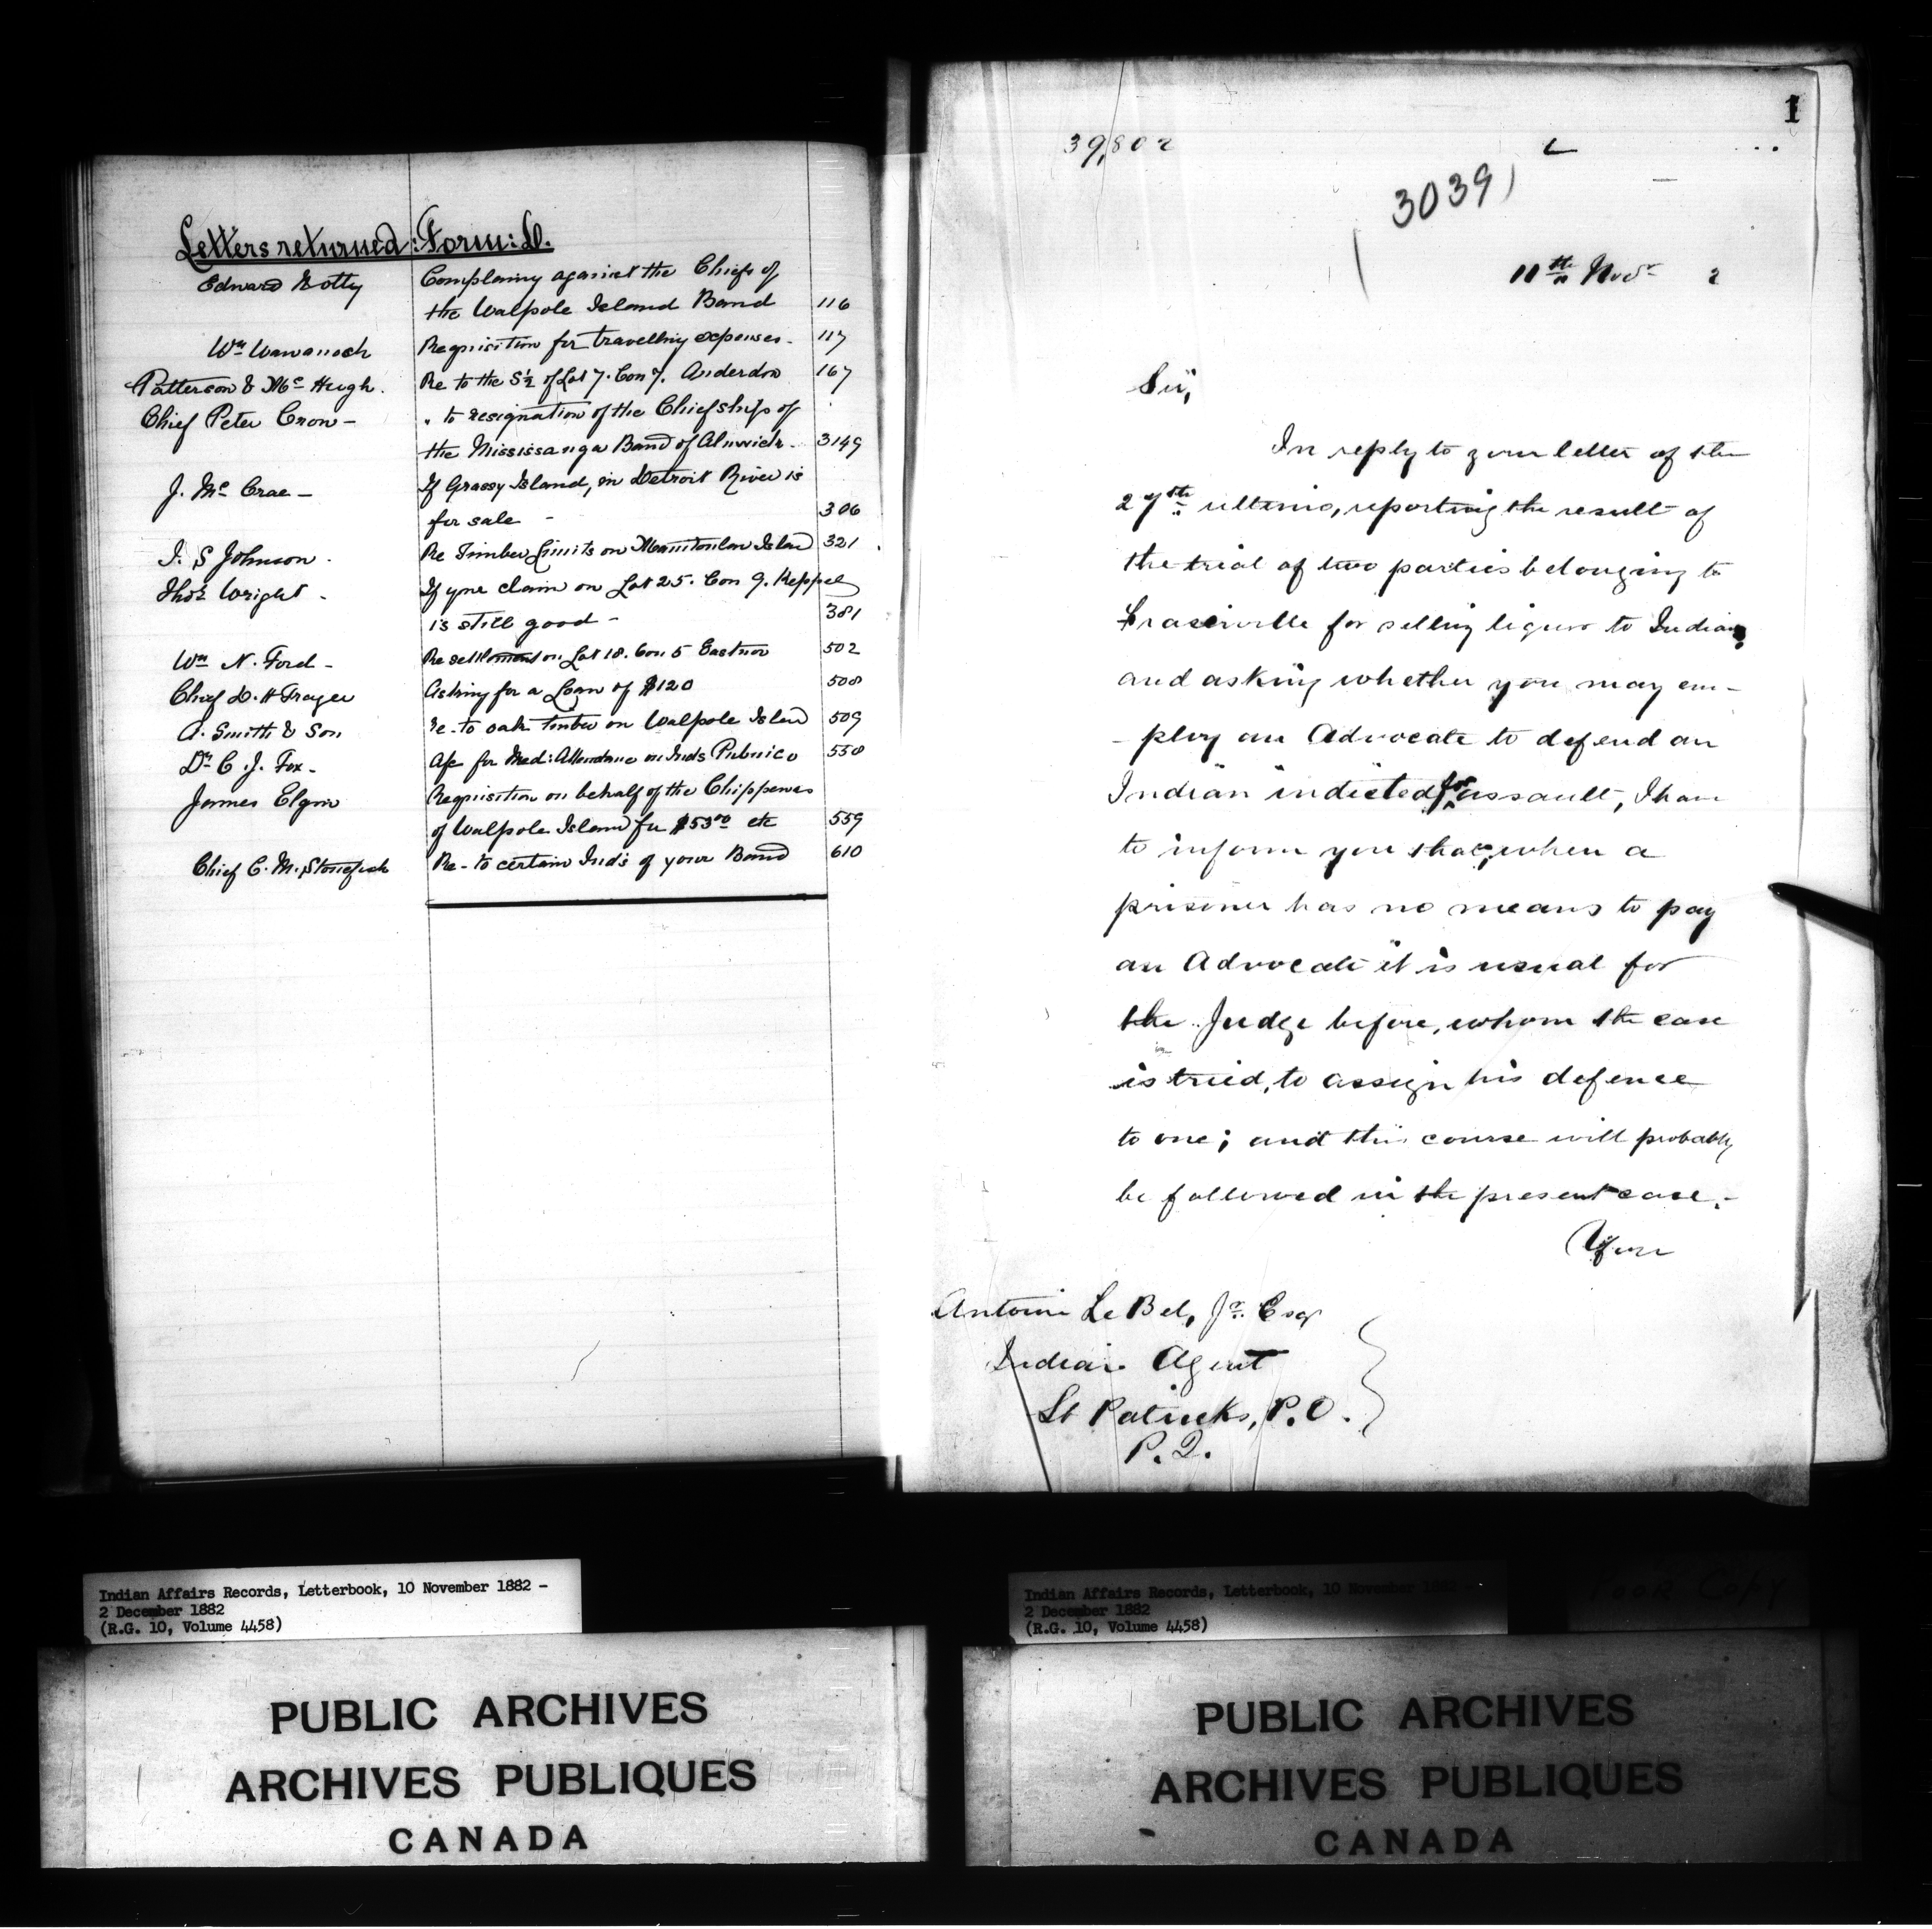 Letters returned: Form: D.
Edward Complaing against the Chiefs of
the Walpole Island Band 116
Wm Wawanosh Requisition for travelling expenses - 117
Patterson & McHugh. Re to the S½ of Lot 7. Con 7. Anderdon 167
Chief Peter Crow - " to resignation of the Chiefships of
the Mississauga Band of Alnwick - 3149
J. McCrae - If Grassy Island, in Detroit River is
for sale - 306
I. S Johnson. Re Timber Limits on Manitoulin Island 321
Thos Wright - If yre claim on Lot 25. Con 9. Keppel
is still good - 381
Wm N. Ford - Re settlement on Lot 18. Con 5 Eastnor 502
Chief Asking for a Loan of $120 508
A. Smith & Son re - to oak timber on Walpole Island 509
Dr C. J. Fox - for Med: Attendance on Inds Pubnico 558
James Elgin Requisition on behalf of the Chippewas
of Walpole Island for $53.00 etc 559
Chief C. M. Stonefish Re - to certain Inds of your Band 610
1
39,802 L
30391
11th Novr 2
Sir,
In reply to your letter of the
27th ultimo, reporting the result of
the trial of two parties belonging to
Fraserville for selling liquor to Indians,
and asking whether you may em-
- ploy an Advocate to defend an
Indian indicted for assault, I have
to inform you that, when a
prisoner has no means to pay
an Advocate it is usual for
the Judge before, whom the case
is tried, to assign his defence
to one; and this course will probably
be followed in the present case. -
Your
Antoine Le Bel, Jr. Esqr
Indian Agent
St Patricks, P.O.
P.Q.
Indian Affairs Records, Letterbook, 10 November 1882 -
2 December 1882
(R.G. 10, Volume 4458)
PUBLIC ARCHIVES
ARCHIVES PUBLIQUES
CANADA
Indian Affairs Records, Letterbook, 10 November 1882 -
2 December 1882
(R.G. 10, Volume 4458)
Poor Copy
PUBLIC ARCHIVES
ARCHIVES PUBLIQUES
CANADA